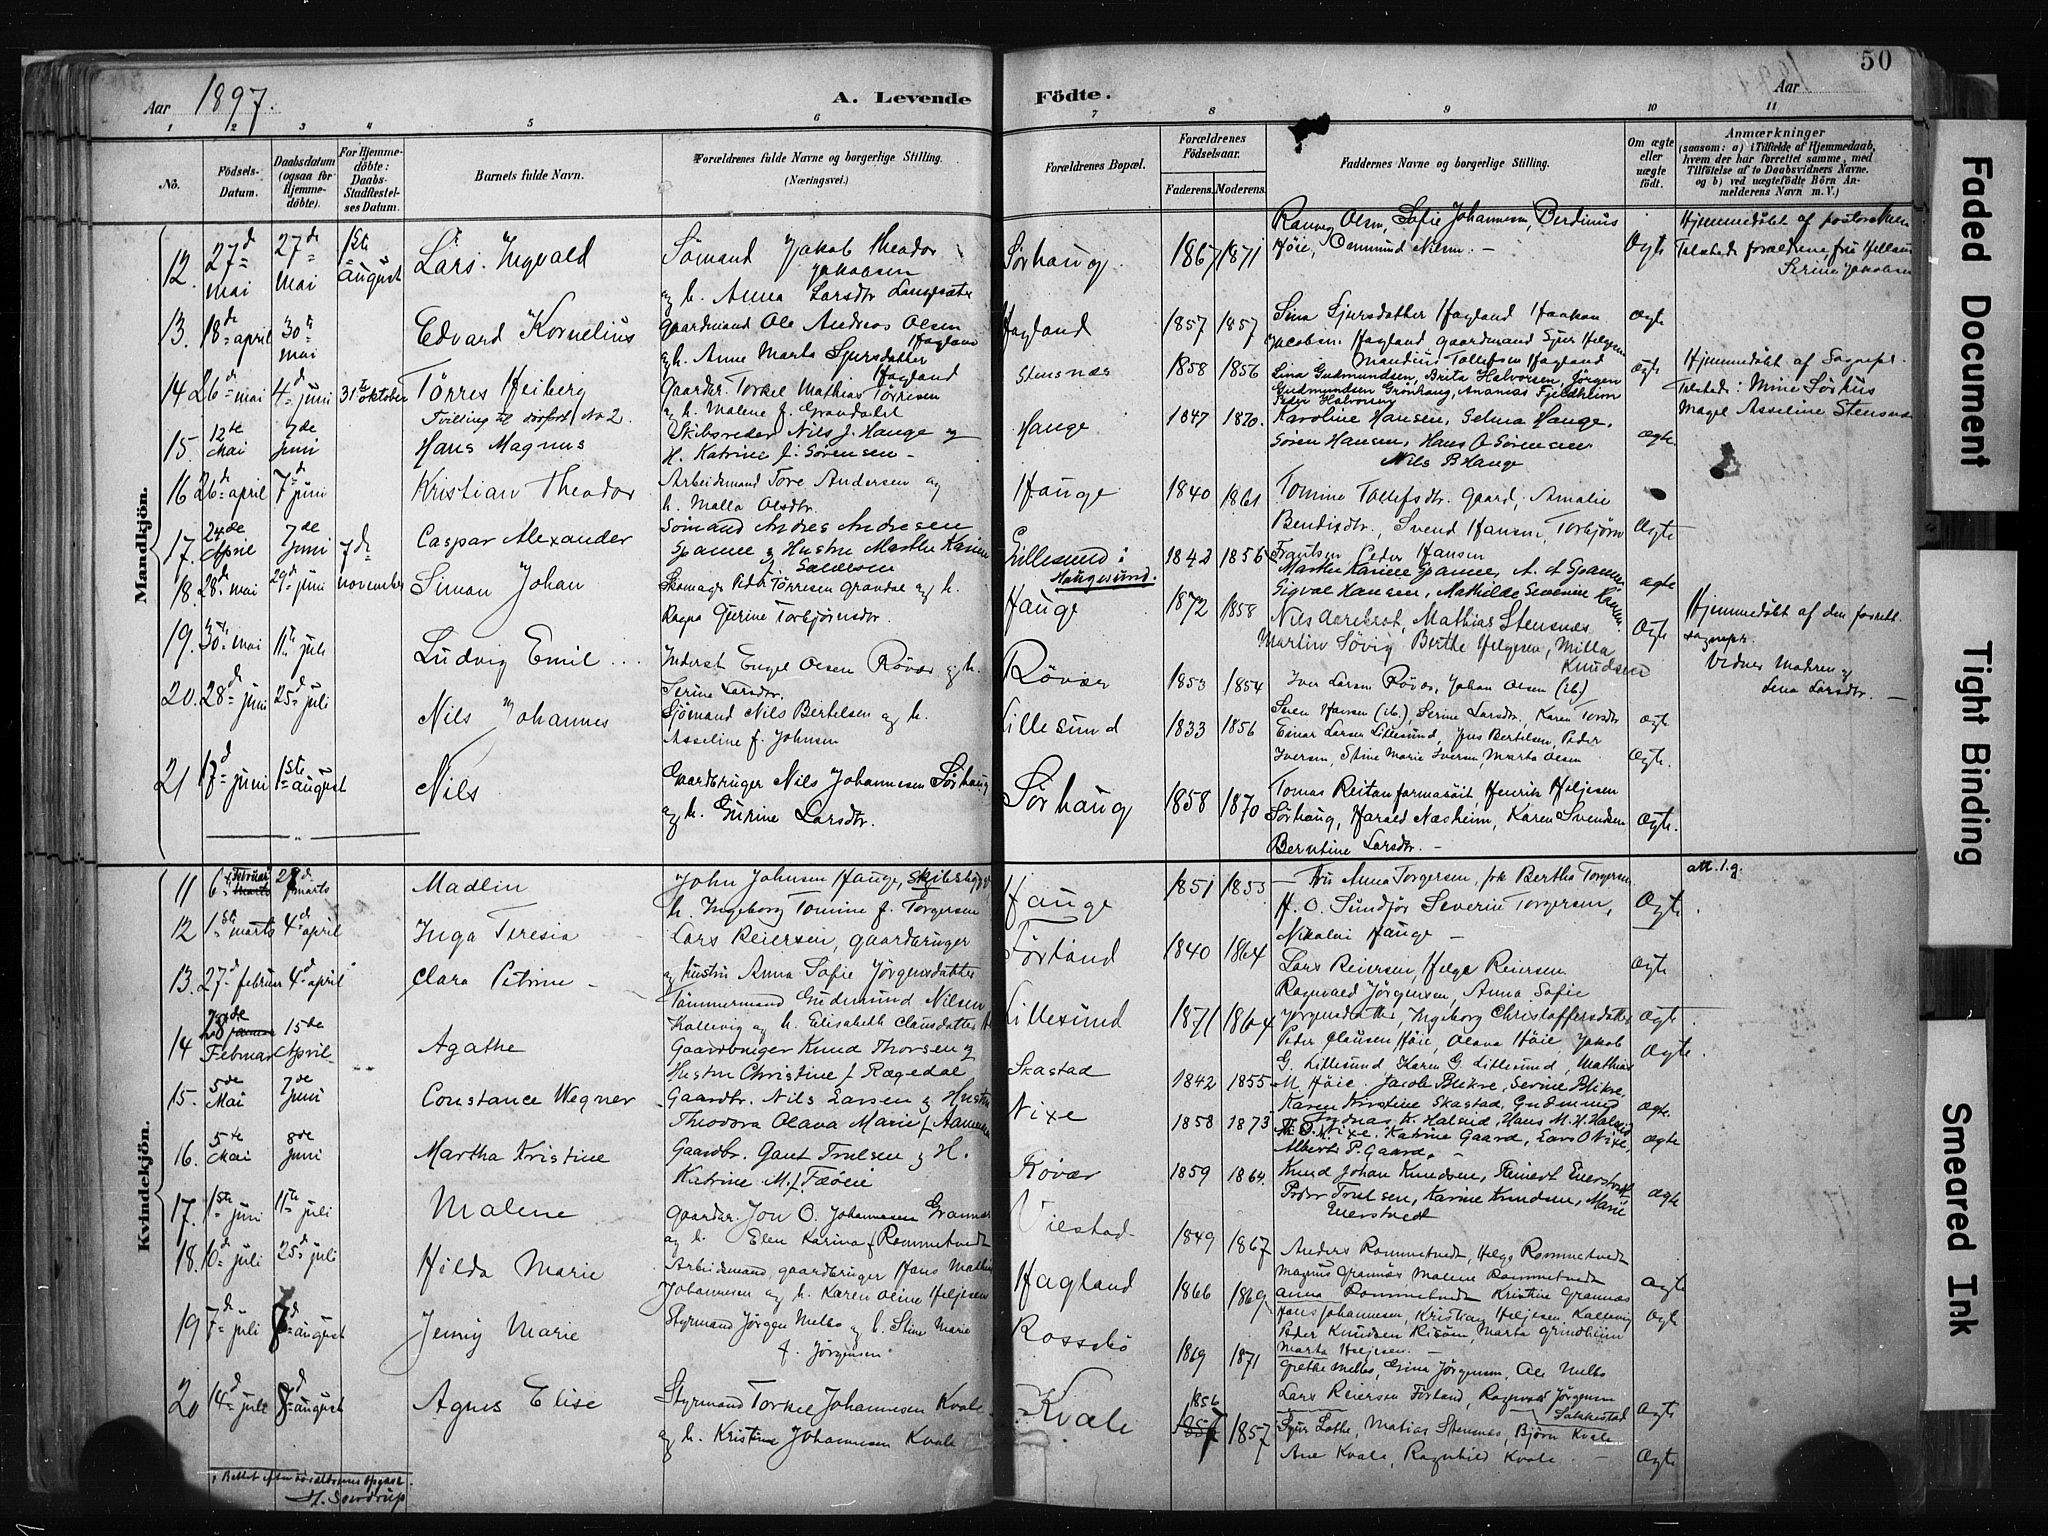 50
Aar 1897.
A. Levende Födte.
Aar
1 2 3 4 5 6 7 8 9 10 11
No.
Födsels-Datum.
Daabsdatum (ogsaa for Hjemme-döbte).
For Hjemme-döbte: Daabs-Stadfæstel-ses Datum.
Barnets fulde Navn.
Forældrenes fulde Navne og borgerlige Stilling. (Næringsvei.)
Forældrenes Bopæl.
Forældrenes Födselsaar.
Faderens. Moderens.
Faddernes Navne og borgerlige Stilling.
Om ægte eller uægte födt.
Anmærkninger
(saasom: a) i Tilfælde af Hjemmedaab,
hvem der har forrettet samme, med
Tilföielse af to Daabsvidners Navne.
og b) ved uægtefödte Börn An-
melderens Navn m. V.)
Mandkjön.
12. 27de mai 27de mai 1ste august Lars Ingvald
Sømand Jakob Theodor Jakobsen
og h. Anna Larsdtr
Sørhaug. 1867 1871
Olsen, Sofie Johannesen, Berdinus
Høie, Nilsen. —
Ægte
Hjemmedøbt af
13. 18de april 30te mai Edvard Kornelius
Gaardmand Ole Andreas Olsen Hagland
og h. Anne Marta Sjursdatter
Hagland 1857 1857
Sina Sjursdatter Hagland Haakon
Jacobsen Hagland gaardmand Sjur Helgesen
Tollefsen Hagland
ægte
14 26de mai 4de juni 31te oktober Tørres Heiberg
Tvilling til No 2.
Gaardbr. Torkel Mathias Tørresen
og h. Malene
Stensnæs 1858 1856
Lina Gudmundsen, Brita Halvorsen, Jørgen
Gudmundsen Grønhaug, Ananias Fjeldheim
Peder Halvorsen
ægte
Hjemmedøbt af Sognepr.
Asseline Stensnæs
15. 12te Mai 7de Juni Hans Magnus
Skibsreder Nils J. Hauge og
H. Katrine f. Sørensen —
Hauge 1847 1870.
Karoline Hansen, Selma Hauge,
Søren Hansen, Hans O Sørensen
Nils B Hauge
ægte
16 26de april 7de juni Kristian Theodor
Arbeidsmand Tore Andersen og
h. Malla Olsdtr.
Hauge 1840 1861
Tomine Tollefsdtr. Gaard, Amalie
Bendixdtr, Svend Hansen, Torbjørn
Ægte
17. 24de April 7de Juni Caspar Alexander
Sømand Andres Andresen
Spanne og Hustru Marthe Karine
Lillesund i Haugesund. 1842 1856
Marthe Karine Spanne, A. A Spanne,
Sigval Hansen, Mathilde Severine Hansen.
ægte
18. 28de mai 29de juni 7de november Simon Johan
Tørresen Grandal og h.
Torbjørnsdtr.
Hauge 1872 1858
Nils Aarekrot, Mathias Stensnæs
Martin Søvig, Berthe Helgesen, Milla Knudsen
Ægte
Hjemmedøbt af den
sognepr.
Vidner Madren og
Lena Larsdtr. —
19. 30te mai 11te juli Ludvig Emil
Inderst Engel Olsen Røvær og h.
Serine Larsdtr.
Røvær 1853 1854
Iver Larsen Røvær, Johan Olsen (ib.)
Sven Hansen (ib.), Serine Larsdtr,
ægte
20. 28de juni 25de juli Nils Johannes
Sjømand Nils Bertelsen og h.
Asseline f. Johnsen
Lillesund 1833 1856
Lillesund, Jens Bertelsen, Peder
Iversen, Stine Marie Iversen, Marta Olsen
Ægte.
21 17de juni 1ste august Nils
Gaardbruger Nils Johannesen Sørhaug
og h. Gurine Larsdtr.
Sørhaug 1858 1870
Tomas Reitan farmasøit, Henrik Heljesen
Sørhaug, Harald Næsheim, Karen Svendsen
Berntine Larsdtr. —
Ægte.
Kvindekjön.
11 6te Februar marts Madlin
John Johnsen Hauge, Skibsbygger
h. Ingeborg Tomine f. Torgersen
Hauge 1851 1853
Fru Anna Torgersen, frk Bertha Torgersen
H. O. Sundför Severin Torgersen,
Nikolai Hauge —
Ægte.
att. l. g.
12 1ste marts 4de april Inga Teresia
Lars Reiersen, gaardbruger
og hustru Anna Sofie Jörgensdatter
Førland 1840 1864
Lars Reiersen, Helga Reiersen
Ragnvald Jørgensen, Anna Sofie
Ægte
13. 27de februar 4de april Clara Petrine
Tømmermand Gudmund Nilsen
Kallevig og h. Elisabeth Clausdatter
Lillesund 1871 1864
Jørgensdatter, Ingeborg Christoffersdatter
Peder Clausen Høie, Olava Høie, Jakob
G. Lillesund, Karen G. Lillesund, Mathias
M. Høie.
Ægte.
14 28de Februar 15de April Agathe
Gaardbruger Knud Thorsen og
Hustru Christine f. Røgedal
Skastad 1842 1855
Jacob Blikre, Serine Blikre,
Karen Kristine Skastad, Gudmund
Ægte.
15. 5de Mai 7de Juni Constance Wegner
Gaardbr. Nils Larsen og Hustru
Theodora Olava Marie f.
Nixe 1858 1873
K. Halseid, Hans M. H. Halseid
Nixe, Katrine Gaard, Lars O Nixe,
Albert P. Gaard. —
ægte
16. 5te Mai 8de Juni Martha Kristine
Gaardbr. Gaut Trulsen og H.
Katrine M. f. Fæøen
Røvær 1859 1864.
Knud Johan Knudsen, Reinert Enerstvedt
Peder Trulsen, Karine Knudsen, Marie Enerstvedt
ægte
17. 1ste juni 11te juli Malene
Gaardbr. Jon O. Johannesen Grannæs
og h. Elen Karina f. Rommetvedt
Viestad 1849 1867
Anders Rommetvedt, Helga Rommetvedt
Magnus Grannæs Malene Rommetvedt
Anna Rommetvedt Kristine Grannæs
Ægte
18. 10de juli 25de juli Hilda Marie
Arbeidsmand, gaardbruger Hans Mathias
Johannesen og h. Karen Oline Heljesen
Hagland 1866 1869
Hans Johannesen, Kristian Heljesen Kallevig
Peder Knudsen Risøen, Marta Grindheim
Marta Heljesen. —
Ægte
19 7de juli 8de august Jenny Marie
Styrmand Jørgen Melbo og h. Stine Marie
f. Jørgensen
Rossebø 1869 1871
Grethe Melbo, Gina Jørgensen, Ole Melbo
Lars Reiersen Førland, Ragnvald Jørgensen
Sakkestad
Ægte
20 14de juli 8de august Agnes Elise
Styrmand Torkel Johannesen Kvale
og h. Kristine Johannesen Kvale
Kvale 1856 1857
Sjur Lothe, Matias Stensnes, Bjørn Kvale
Ane Kvale, Ragnhild Kvale. —
Ægte
Rettet efter forældrenes opgave.
H. Sverdrup
Faded Document
Tight Binding
Smeared Ink